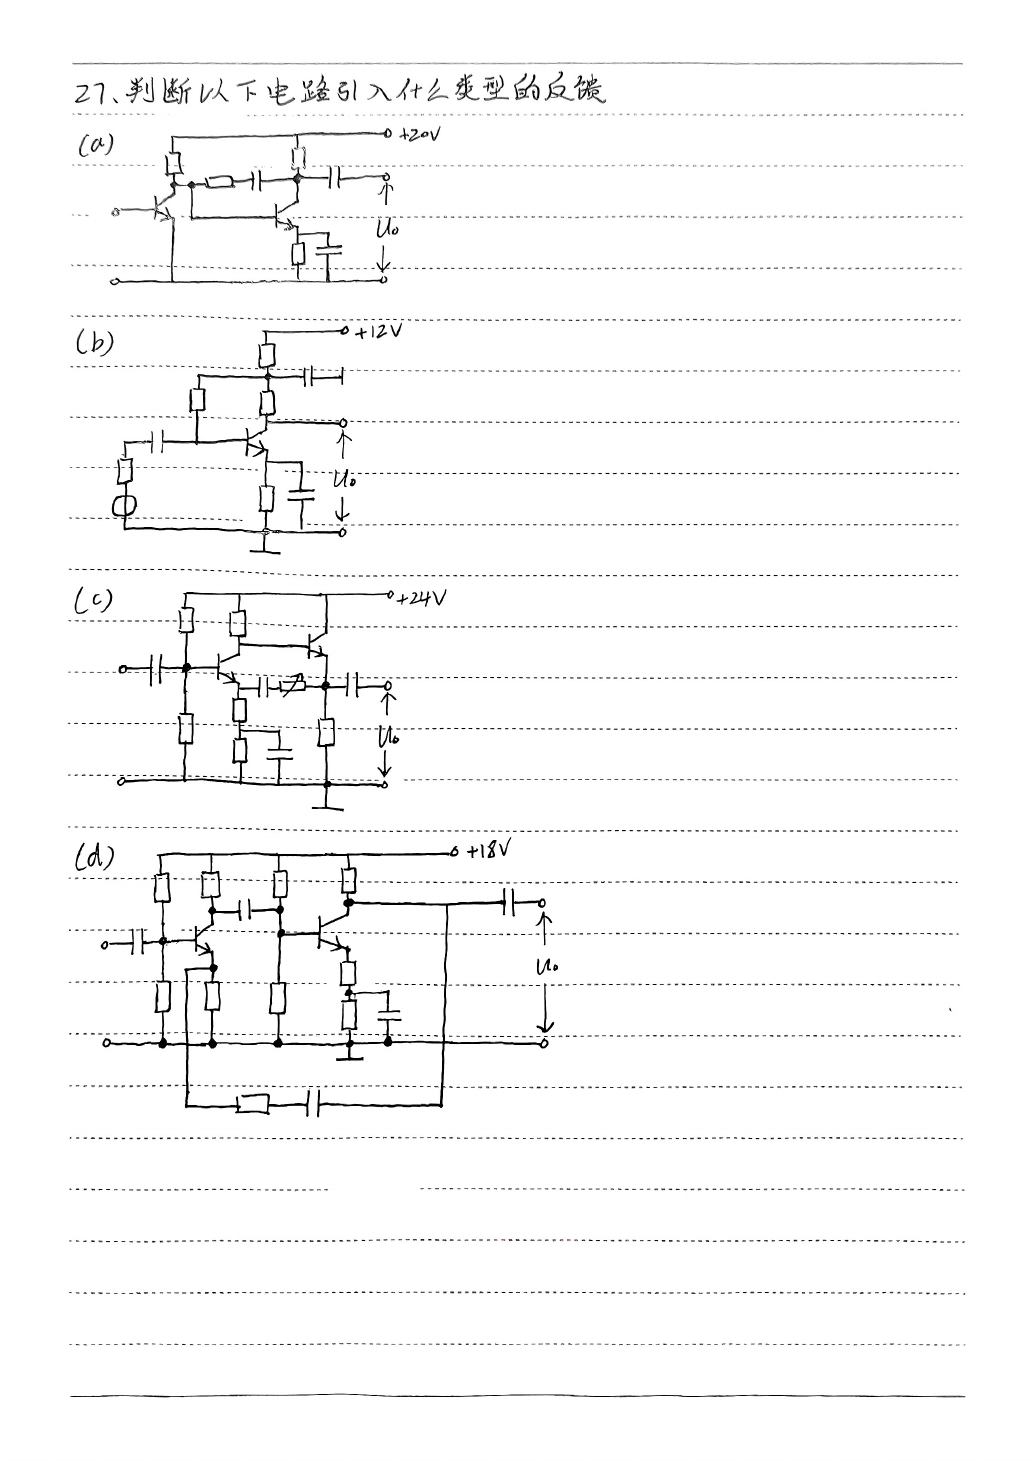 27、判断以下电路引入什么类型的反馈
(a)
+20V
U₀
(b)
+12V
U₀
(c)
+24V
U₀
(d)
+18V
U₀